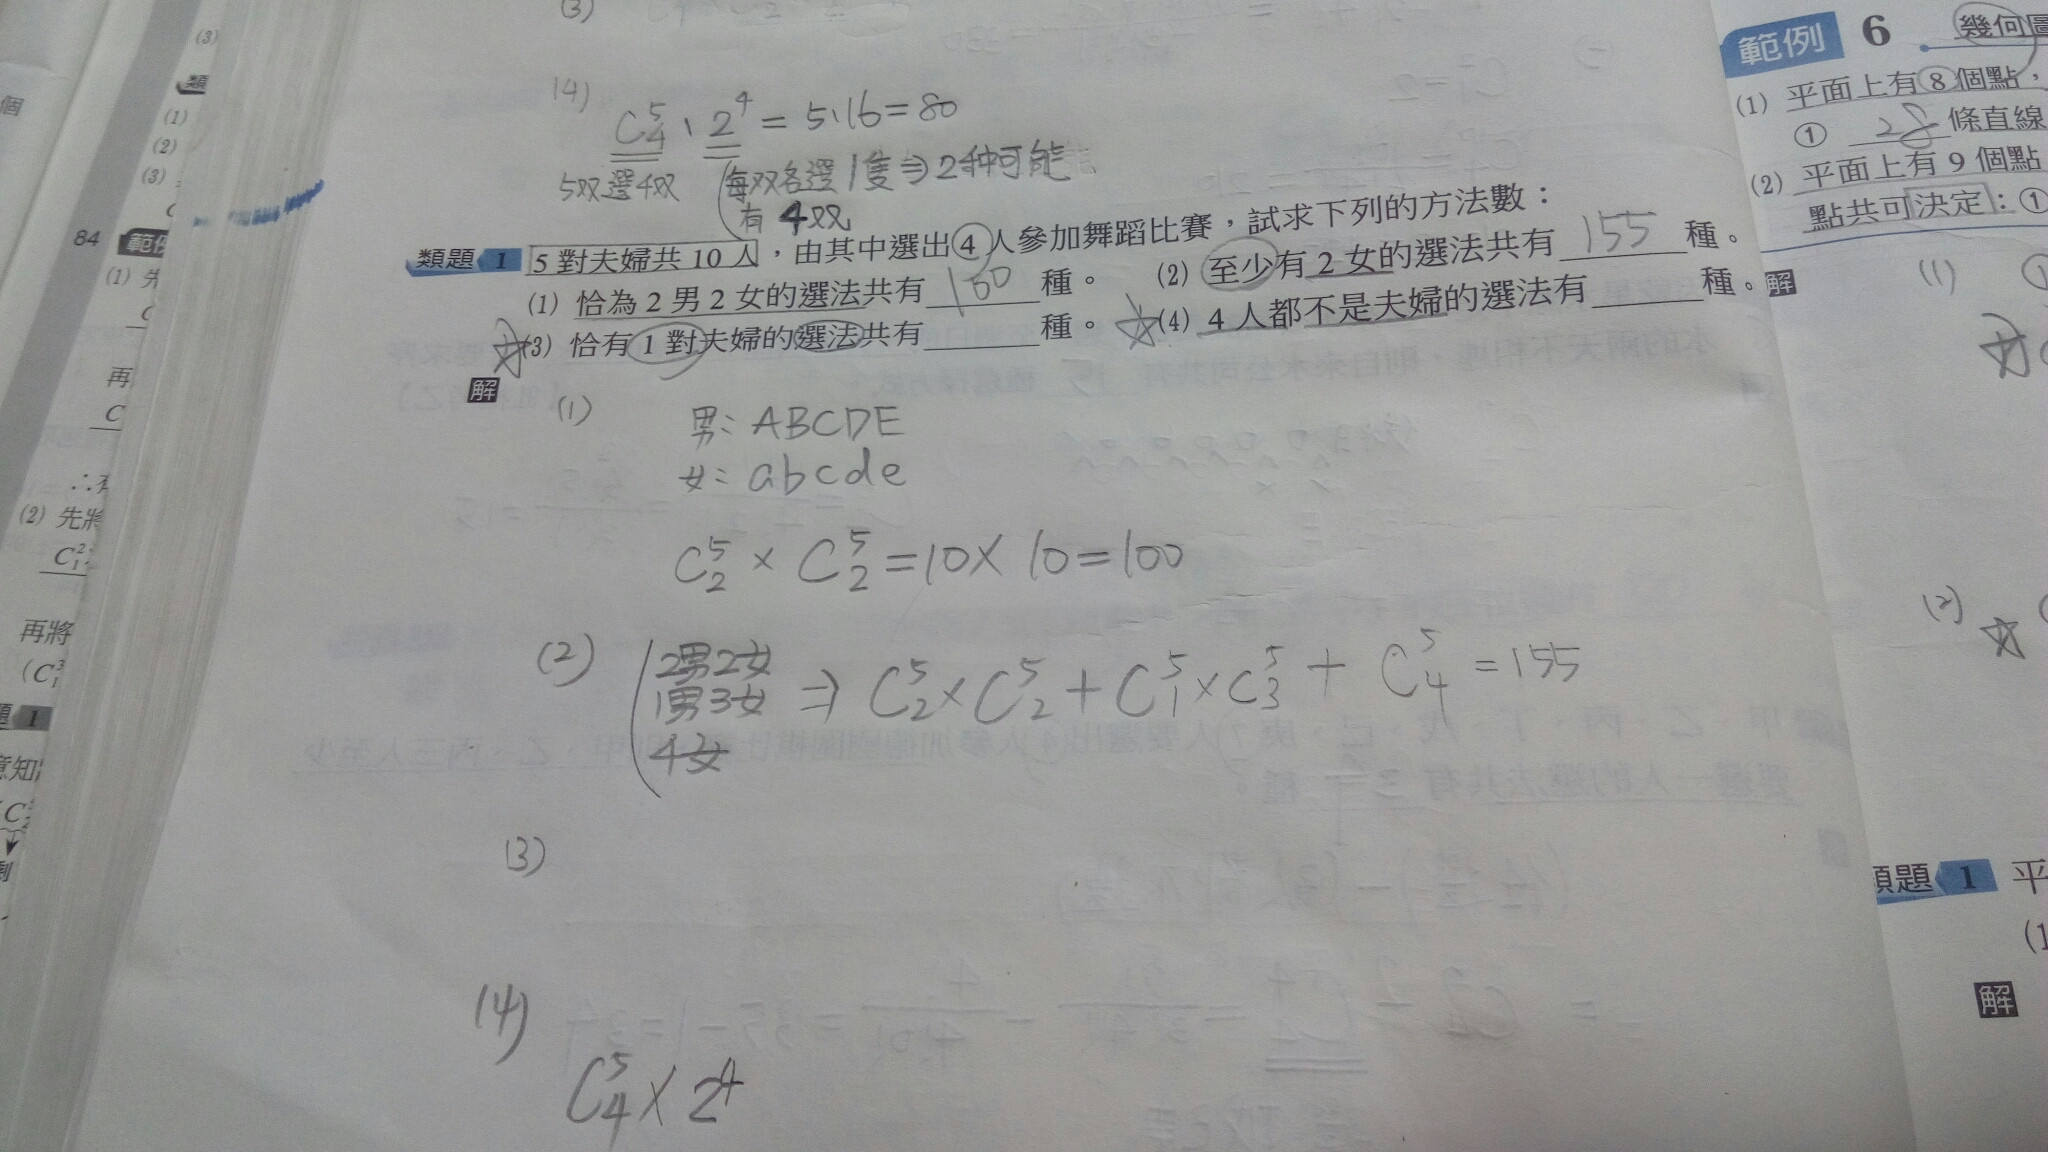 (3)
(4) C⁵₄ · 2⁴ = 5·16 = 80
5双選4双 (每双各選1隻⇒2种可能
有4双
類題 1 5對夫婦共10人，由其中選出④人參加舞蹈比賽，試求下列的方法數：
(1) 恰為2男2女的選法共有 100 種。 (2) 至少有2女的選法共有 155 種。
☆(3) 恰有1對夫婦的選法共有______種。 ☆(4) 4人都不是夫婦的選法有______種。解
解 (1) 男: ABCDE
女: abcde
C⁵₂ × C⁵₂ = 10 × 10 = 100
(2) 2男2女
1男3女 ⇒ C⁵₂ × C⁵₂ + C⁵₁ × C⁵₃ + C⁵₄ = 155
4女
(3)
(4)
C⁵₄ × 2⁴
範例 6 幾何
(1) 平面上有⑧個點，
① 28 條直線
(2) 平面上有9個點
點共可決定：①
(1)
(2) ☆
類題 1 平
解
個
(3)
類
(1)
(2)
(3)
84
(1) 先
再
C
(2) 先將
C²₁
再將
(C³₁
1
意知